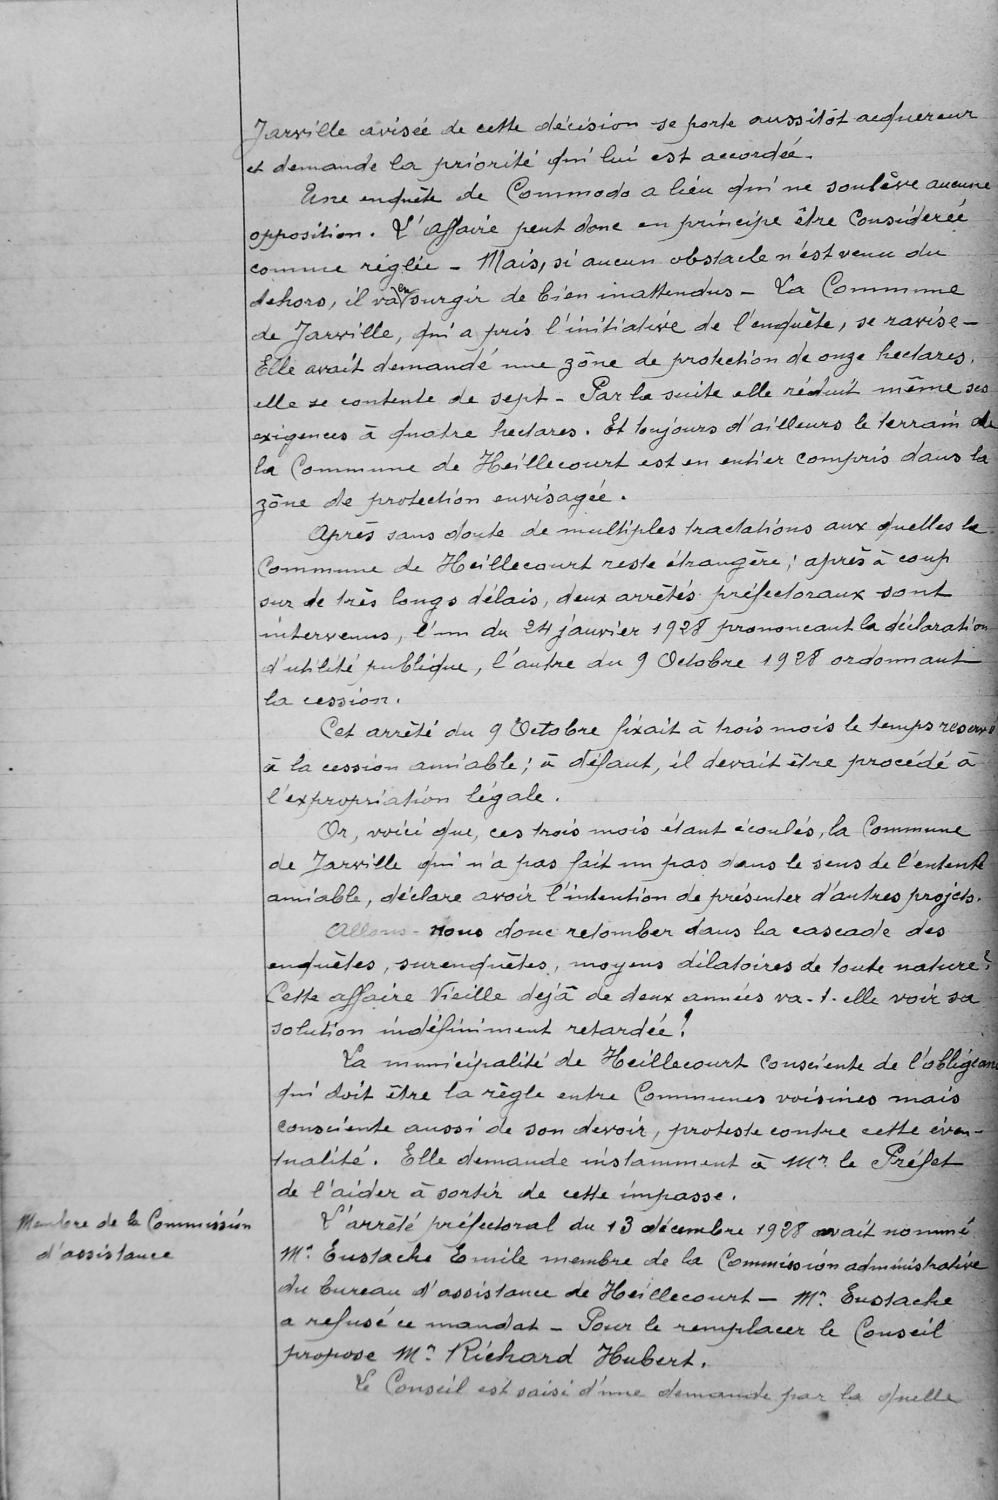 Jarville avisée de cette décision se porte aussitôt acquéreur
et demande la priorité qui lui est accordée.
Une enquête de Commodo a lieu qui ne soulève aucune
opposition. L'affaire peut donc en principe être considérée
comme réglée - Mais, si aucun obstacle n'est venu du
dehors, il va en surgir de bien inattendus - La Commune
de Jarville, qui a pris l'initiative de l'enquête, se ravise -
Elle avait demandé une zône de protection de onze hectares,
elle se contente de sept - Par la suite elle réduit même ses
exigences à quatre hectares. Et toujours d'ailleurs le terrain de
la Commune de Heillecourt est en entier compris dans la
zône de protection envisagée.
Après sans doute de multiples tractations aux quelles la
Commune de Heillecourt reste étrangère ; après à coup
sur de très longs délais, deux arrêtés préfectoraux sont
intervenus, l'un du 24 janvier 1928 prononcant la déclaration
d'utilité publique, l'autre du 9 Octobre 1928 ordonnant
la cession.
Cet arrêté du 9 Octobre fixait à trois mois le temps reservé
à la cession amiable ; à défaut, il devait être procédé à
l'expropriation légale.
Or, voici que, ces trois mois étant écoulés, la Commune
de Jarville qui n'a pas fait un pas dans le sens de l'entente
amiable, déclare avoir l'intention de présenter d'autres projets.
Allons-nous donc retomber dans la cascade des
enquêtes, surenquêtes, moyens dilatoires de toute nature ?
Cette affaire Vieille dejà de deux années va-t-elle voir sa
solution indéfiniment retardée ?
La municipalité de Heillecourt consciente de l'obligeance
qui doit être la règle entre Communes voisines mais
consciente aussi de son devoir, proteste contre cette éven-
tualité. Elle demande instamment à Mr le Préfet
de l'aider à sortir de cette impasse.
Membre de la Commission
d'assistance
L'arrêté préfectoral du 13 décembre 1928 avait nommé
Mr Eustache Emile membre de la Commission administrative
du bureau d'assistance de Heillecourt - Mr Eustache
a refusé ce mandat - Pour le remplacer le Conseil
propose Mr Richard Hubert.
Le Conseil est saisi d'une demande par la quelle